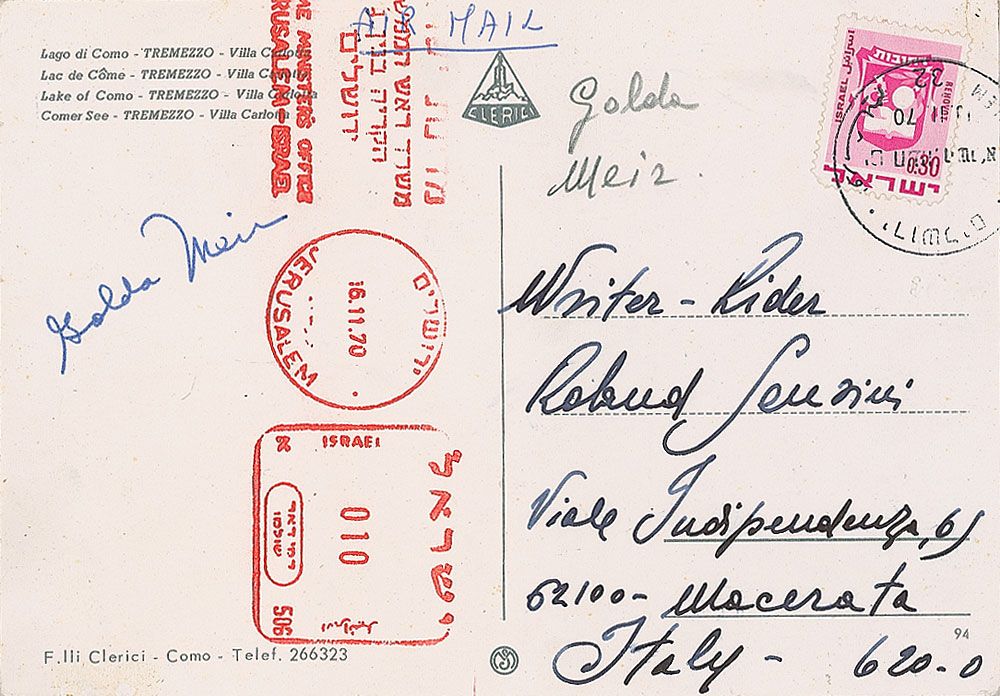 AIR MAIL
Lago di Como - TREMEZZO - Villa Carlotta
Lac de Côme - TREMEZZO - Villa Carlotta
Lake of Como - TREMEZZO - Villa Carlotta
Comer See - TREMEZZO - Villa Carlotta
ME MINISTER'S OFFICE
JERUSALEM-ISRAEL
משרד ראש הממש
הקריה בנין
ירושלים
CLERICI
Golda
Meir.
ISRAEL
REHOVOT
0.80
ישראל
70
Golda Meir
ירושלים
16.11.70
JERUSALEM
ISRAEL
010
ישראל
506
Writer - Rider
Roland Sensini
Viale Indipendenza, 69
62100 - Macerata
Italy - 620-0
F.lli Clerici - Como - Telef. 266323
94